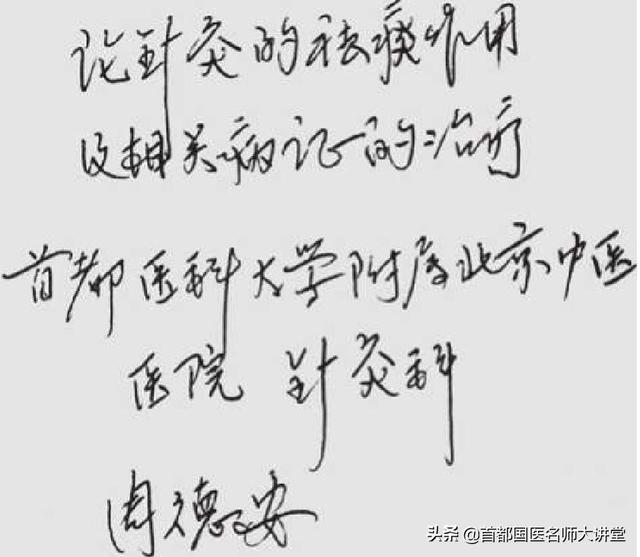 论针灸的祛痰作用
及相关病证的治疗
首都医科大学附属北京中医
医院 针灸科
周德安
头条 @首都国医名师大讲堂